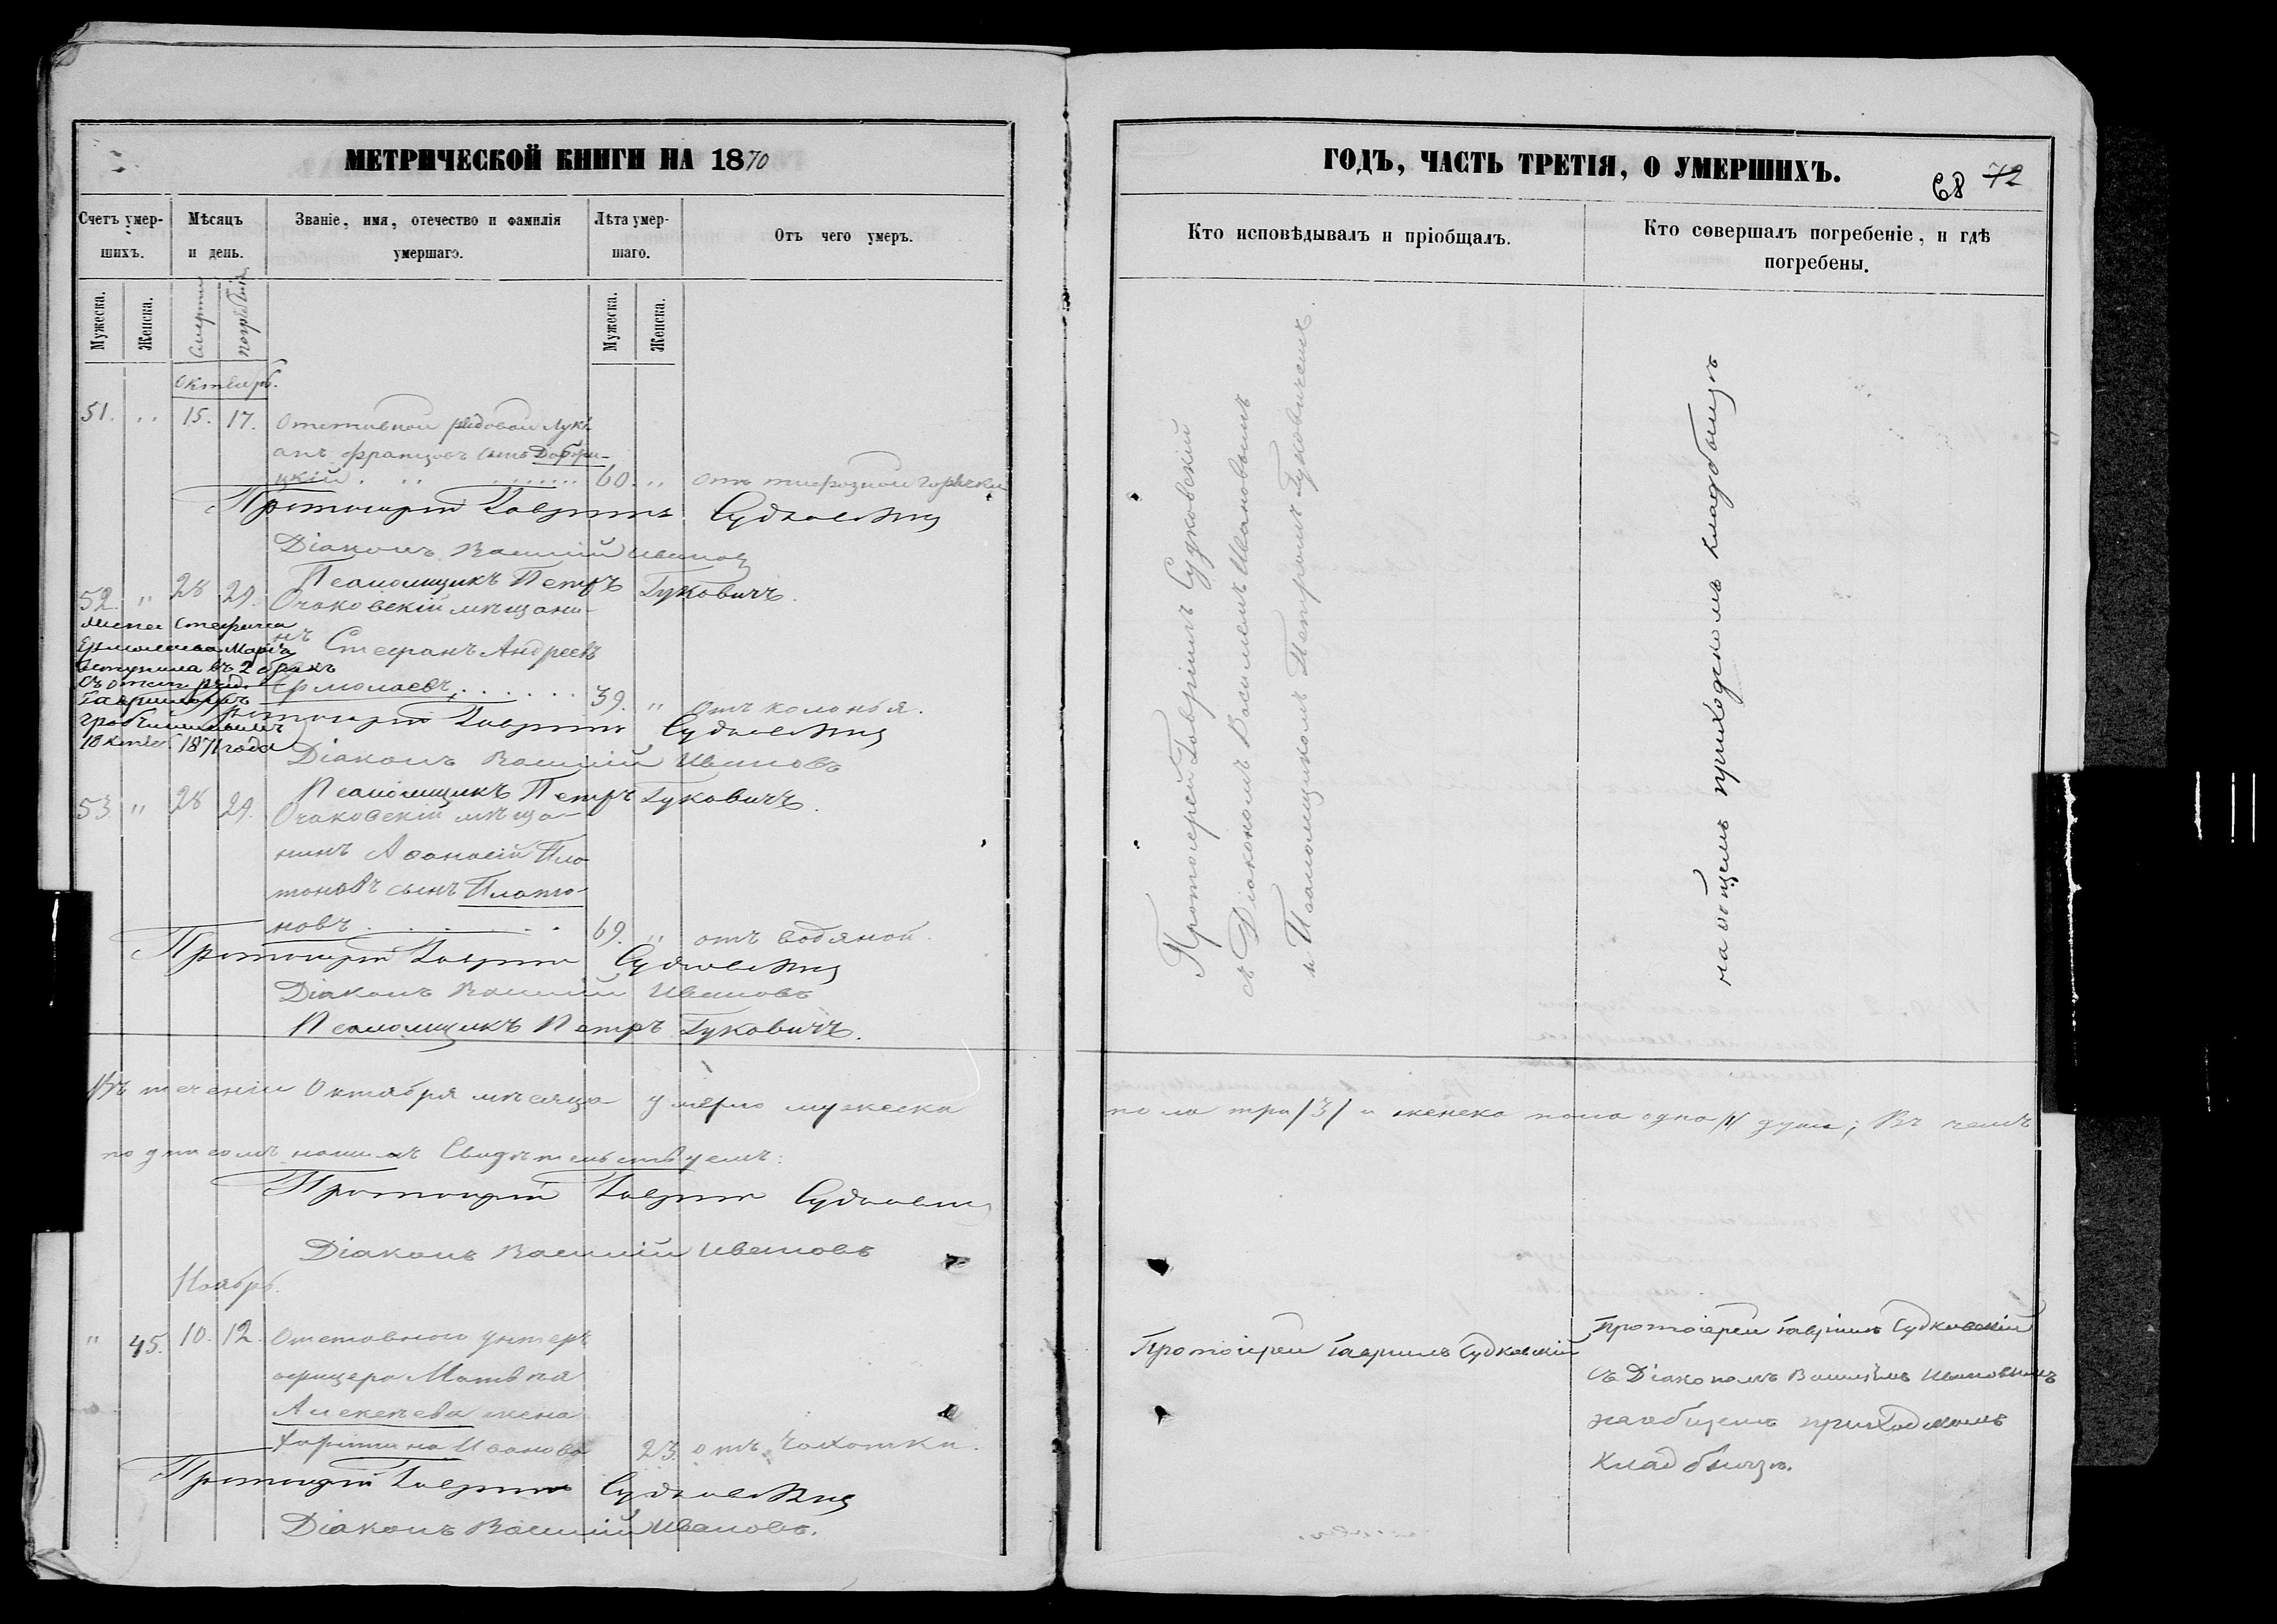 МЕТРИЧЕСКОЙ КНИГИ НА 1870
Счетъ умер-
шихъ.
Мѣсяцъ
и день.
Званіе, имя, отечество и фамилія
умершаго.
Лѣта умер-
шаго.
Отъ чего умеръ.
Мужеска.
Женска.
Смерти
погребенія
Мужеска.
Женска.
Октябрь.
51. „ 15. 17. Отставной рядовой Лукі-
анъ Францовъ сынъ Добри-
цкій 60. „ отъ тифозной горячки
Протоіерей Гавріилъ Судковскій
Діаконъ Василій Ивановъ
Псаломщикъ Петръ Гуковичъ.
52. „ 28 29. Очаковскій мѣщани-
нъ Стефанъ Андреевъ
Ермолаевъ 39. „ отъ колотья.
Жена Стефана
Ермолаева Марія
вступила въ 2 бракъ
съ отст. ряд.
Гавріиломъ
1871 года
Протоіерей Гавріилъ Судковскій
Діаконъ Василій Ивановъ
Псаломщикъ Петръ Гуковичъ.
53 „ 28 29. Очаковскій мѣща-
нинъ Аѳанасій Пла-
тоновъ сынъ Плато-
новъ 69. „ отъ водяной.
Протоіерей Гавріилъ Судковскій
Діаконъ Василій Ивановъ
Псаломщикъ Петръ Гуковичъ.
Въ теченіи Октября мѣсяца умерло мужеска
подписомъ нашимъ Свидѣтельствуемъ:
Протоіерей Гавріилъ Судковскій
Діаконъ Василій Ивановъ
Ноябрь.
„ 45. 10. 12. Отставного унтеръ
офицера Матвѣя
Алексѣева жена
Харитина Иванова 23. отъ чахотки.
Протоіерей Гавріилъ Судковскій
Діаконъ Василій Ивановъ.
ГОДЪ, ЧАСТЬ ТРЕТІЯ, О УМЕРШИХЪ.
68 72
Кто исповѣдывалъ и пріобщалъ.
Кто совершалъ погребеніе, и гдѣ
погребены.
Протоіерей Гавріилъ Судковскій
съ Діакономъ Василіемъ Ивановымъ
и Псаломщикомъ Петромъ Гуковичемъ.
на общемъ приходскомъ кладбищѣ
пола три /3/ и женска пола одна /1/ душа; Въ чемъ
Протоіерей Гавріилъ Судковскій
Протоіерей Гавріилъ Судковскій
съ Діакономъ Василіемъ Ивановымъ
на общемъ приходскомъ
кладбищѣ.